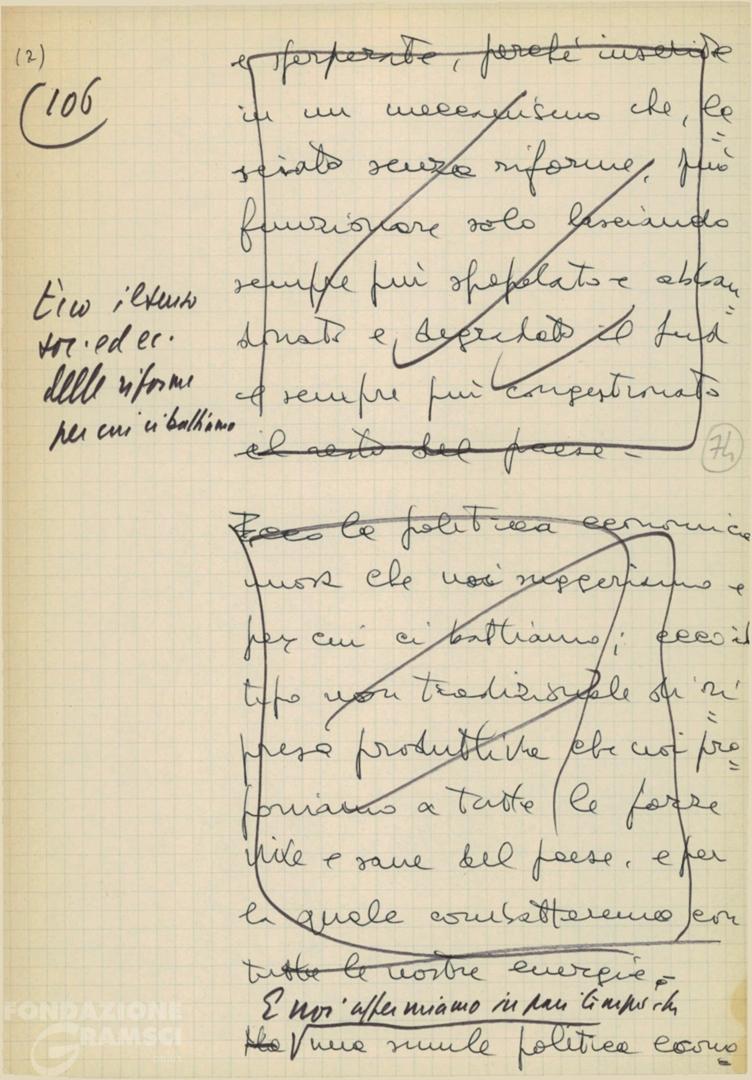 (2)
106
e sperperate, perché inserite
in un meccanismo che, la
sciato senza riforme, può
funzionare solo lasciando
sempre più spopolato e abban
donato e degradato il Sud
e sempre più congestionato
il resto del paese. -
È qui il senso
soc. ed ec.
delle riforme
per cui ci battiamo
74
Ecco la politica economica
nuova che noi suggeriamo e
per cui ci battiamo; ecco il
tipo non tradizionale di ri
presa produttiva che noi pro
poniamo a tutte le forze
vive e sane del paese, e per
la quale combatteremo con
tutte le nostre energie. -
E noi affermiamo in pari tempo ch
Ma una simile politica econo
FONDAZIONE
GRAMSCI